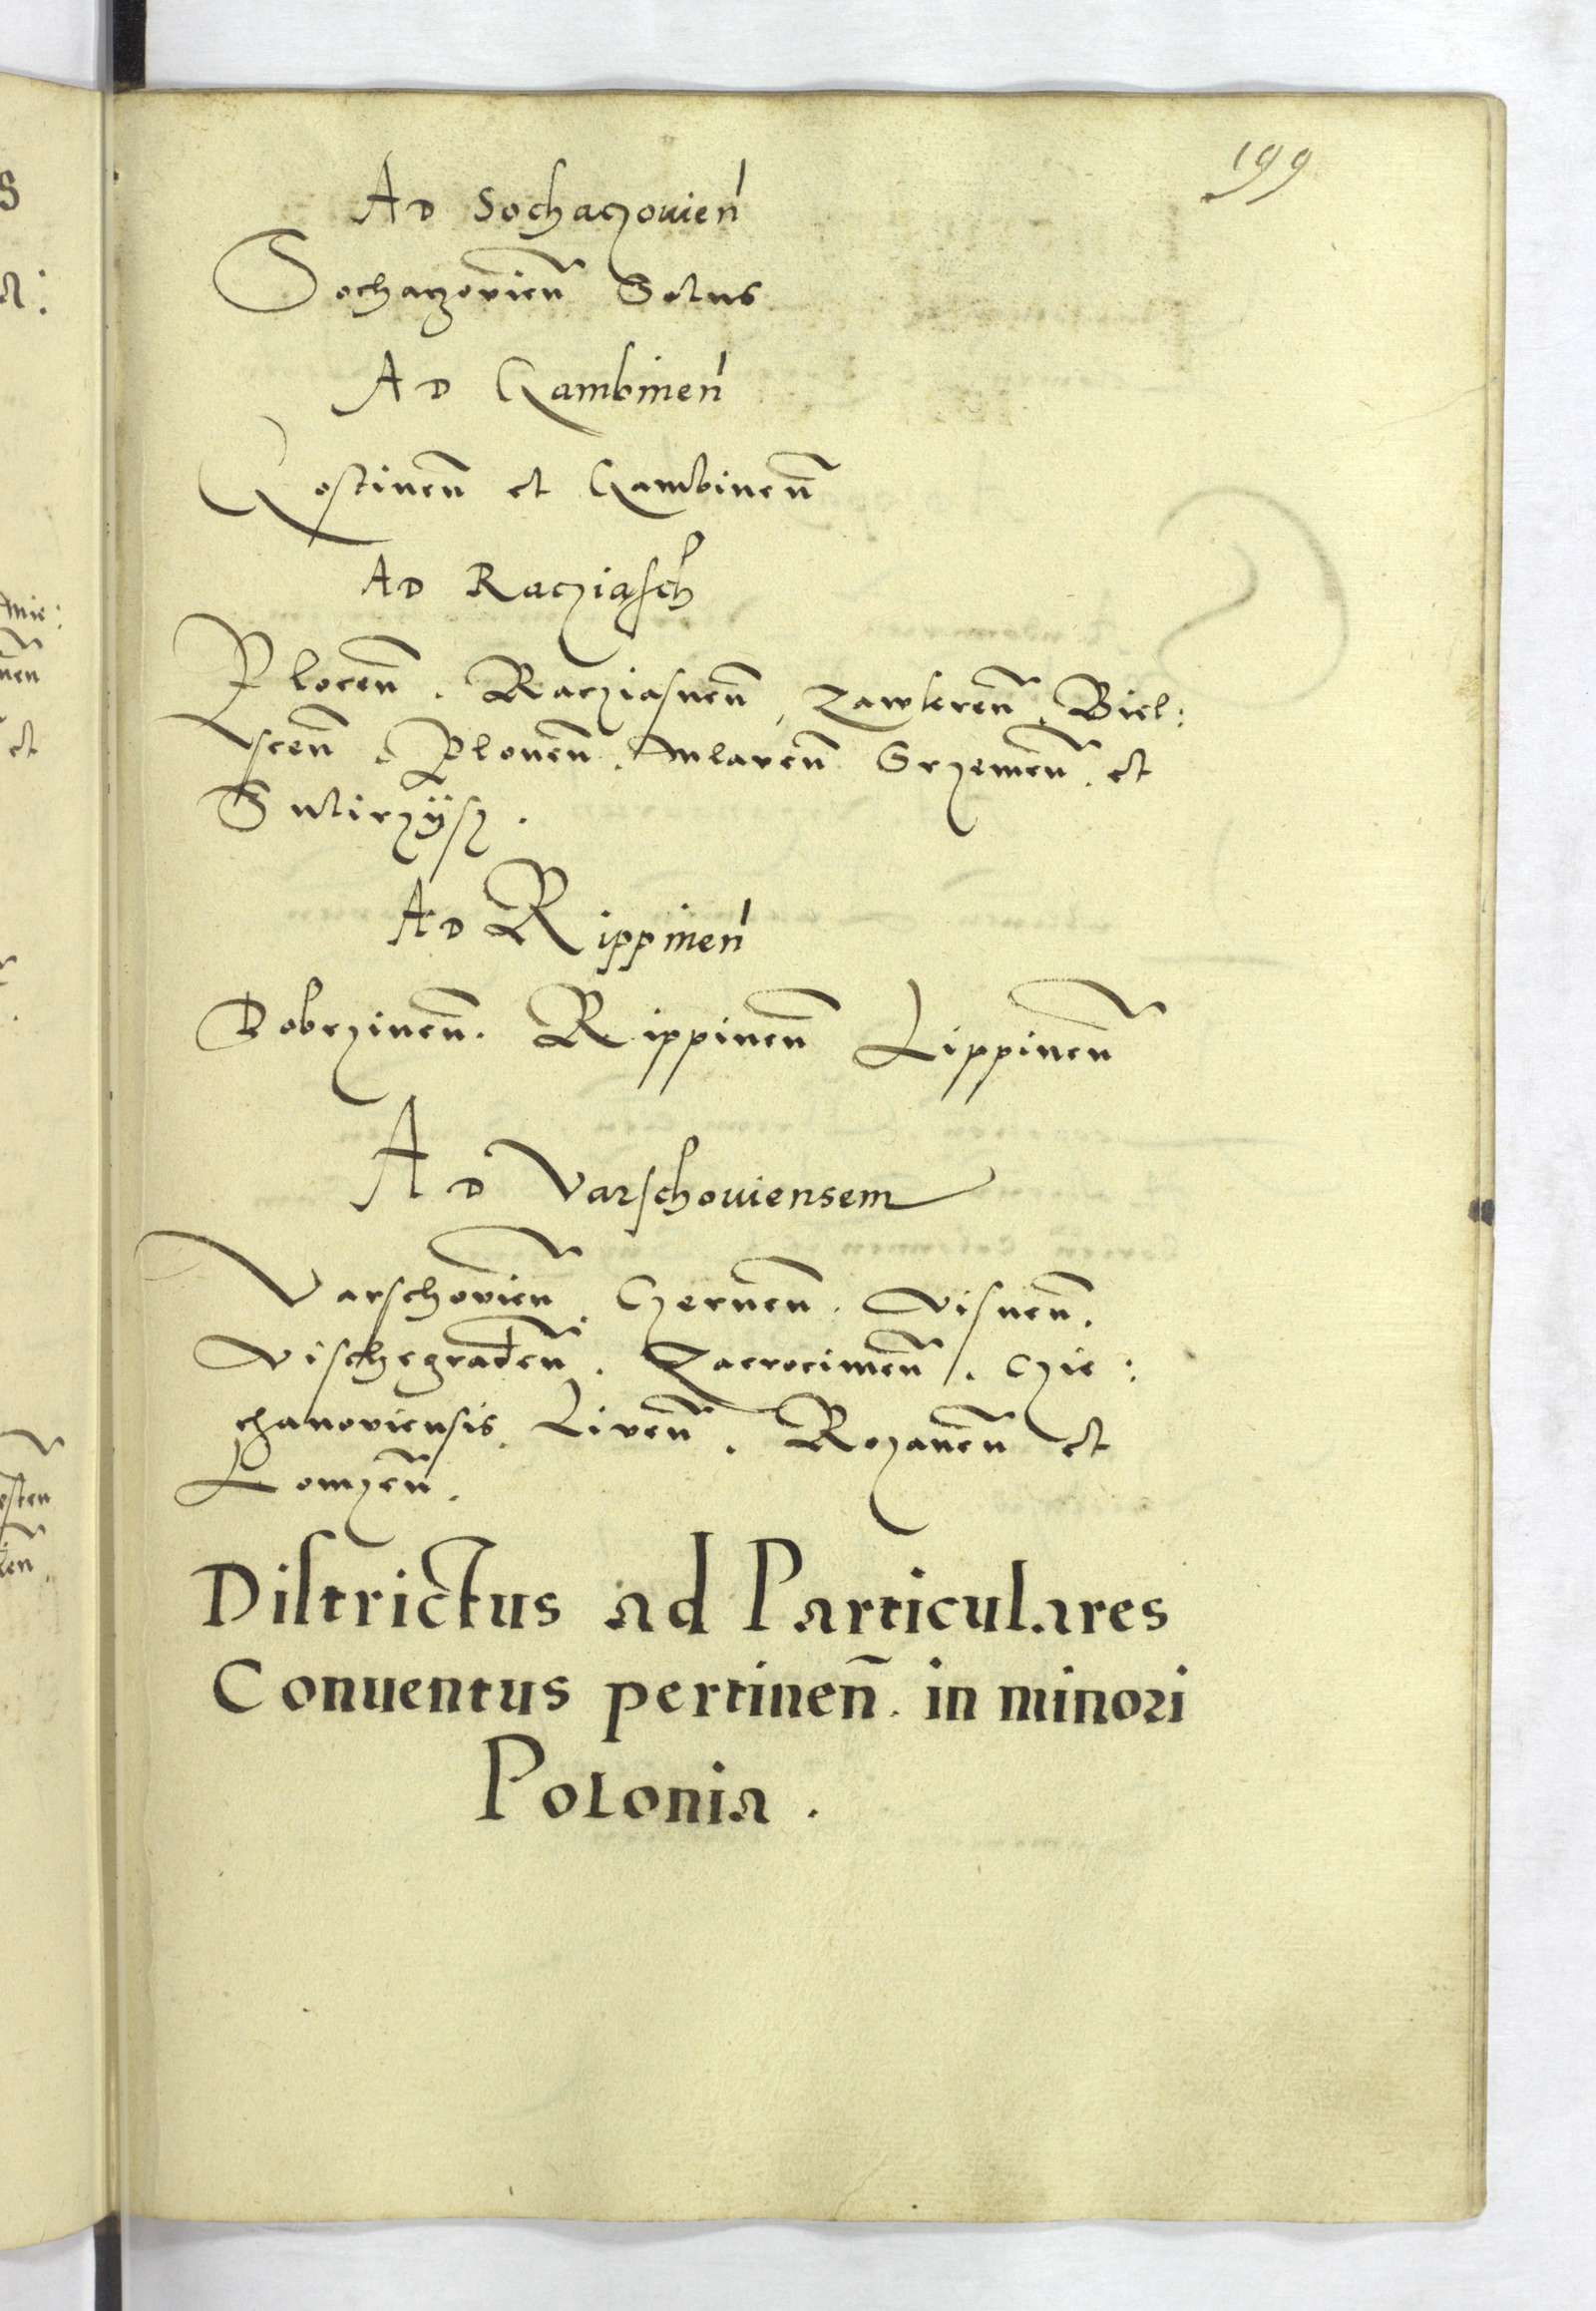 199
Ad Sochaczouien̄
Sochaczovien̄ Solus
Ad Gambinen̄
Gostinen̄ et Gambinen̄
Ad Racziasch
Plocen̄. Racziasnen̄, Zawkren̄. Biel:
scen̄. Plonen̄. Mlaven̄ Srzemen̄. et
Ad Rippinen̄
Dobrzinen̄. Rippinen̄ Lippinen̄
Ad Varschouiensem
Varschovien̄. Czernen̄. Visnen̄.
Vischegraden̄. Zacrocimen̄. Czie:
chanoviensis. Liven̄. Rozanen̄ et
Lomzen̄.
Districtus ad Particulares
Conuentus pertinen̄. in minori
Polonia.